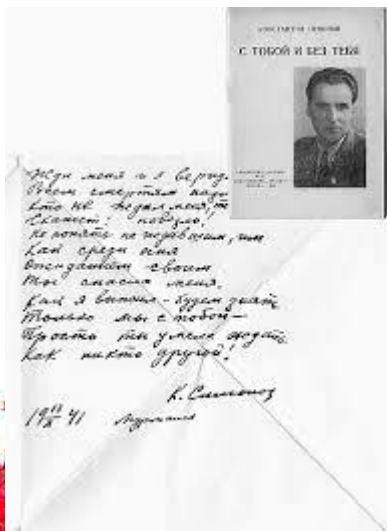 КОНСТАНТИН СИМОНОВ
С ТОБОЙ И БЕЗ ТЕБЯ
Жди меня и я
Всем смертям
Кто не ждал меня,
Скажет: повезло!
Не понять не ждавшим, им
Как среди огня
Ожиданием своим
Ты спасла меня.
Как я выжил – будем знать
Только мы с тобой –
Просто ты умела ждать
Как никто другой!
К. Симонов
19 41 Мурманск